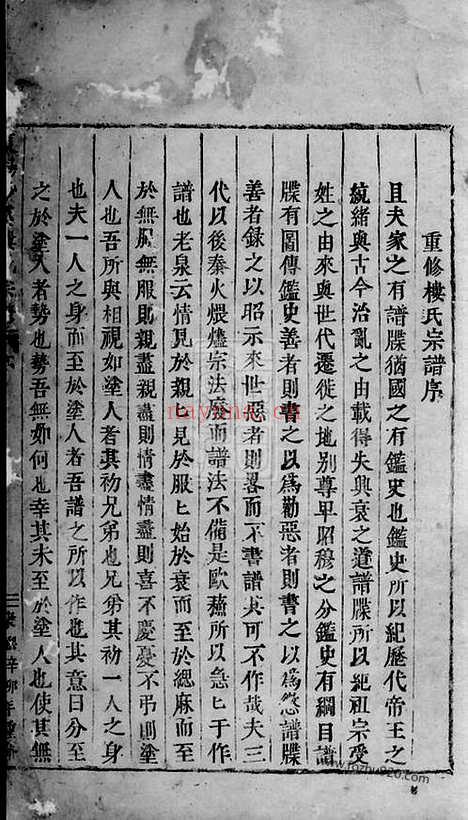 重修樓氏宗譜序
且夫家之有譜牒猶國之有鑑史也鑑史所以紀歷代帝王之
統緒與古今治亂之由載得失興衰之道譜牒所以紀祖宗受
姓之由來與世代遷徙之地別尊卑昭穆之分鑑史有綱目譜
牒有圖傳鑑史善者則書之以爲勸惡者則書之以爲懲譜牒
善者錄之以昭示來世惡者則畧而不書譜其可不作哉夫三
代以後秦火煨燼宗法廢而譜法不備是歐蘇所以急匕于作
譜也老泉云情見於親匕見於服匕始於衰而至於緦麻而至
於無服無服則親盡親盡則情盡情盡則喜不慶憂不弔則塗
人也吾所與相視如塗人者其初兄弟也兄弟其初一人之身
也夫一人之身而至於塗人者吾譜之所以作也其意曰分至
之於塗人者勢也勢吾無如何也幸其未至於塗人也使其無
辛卯年重
nayona.cn
www.fozhu920.com